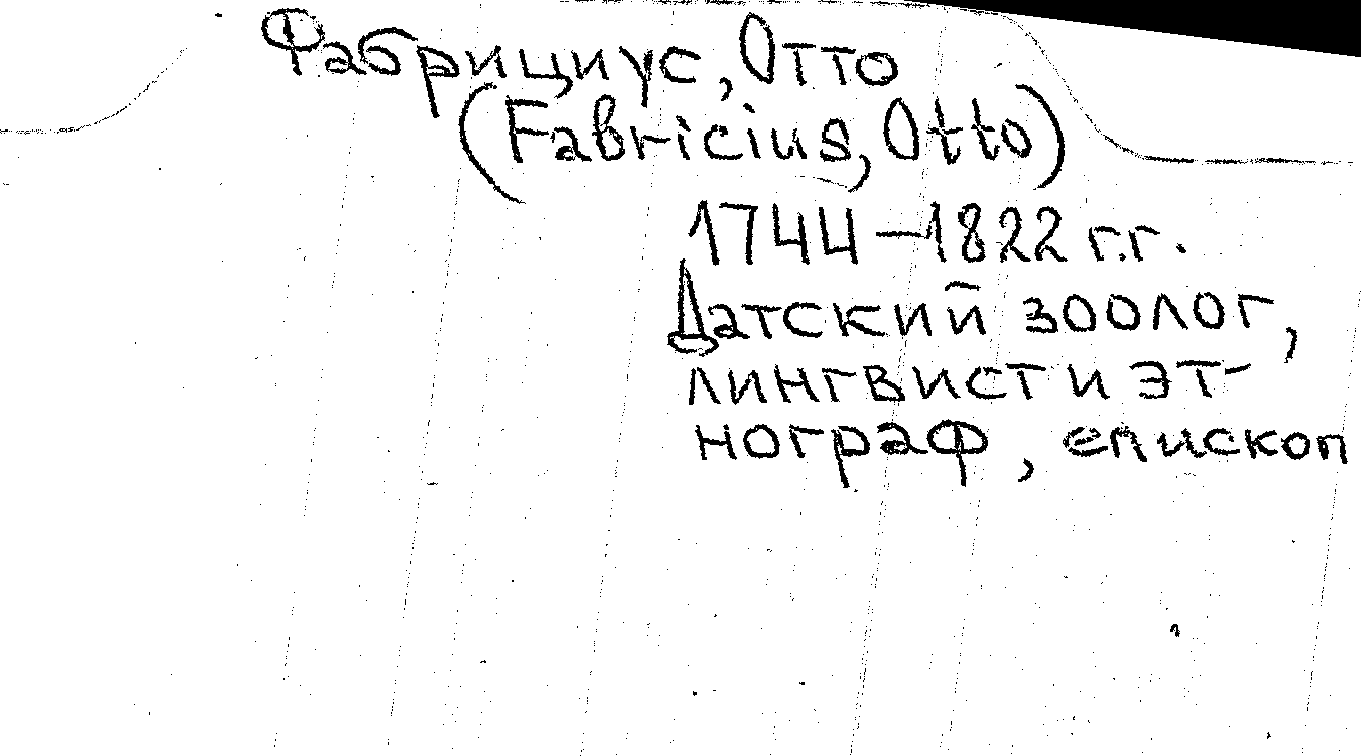 Фабрициус, Отто
(Fabricius, Otto)
1744–1822 г.г.
Датский зоолог,
лингвист и эт-
нограф, епископ